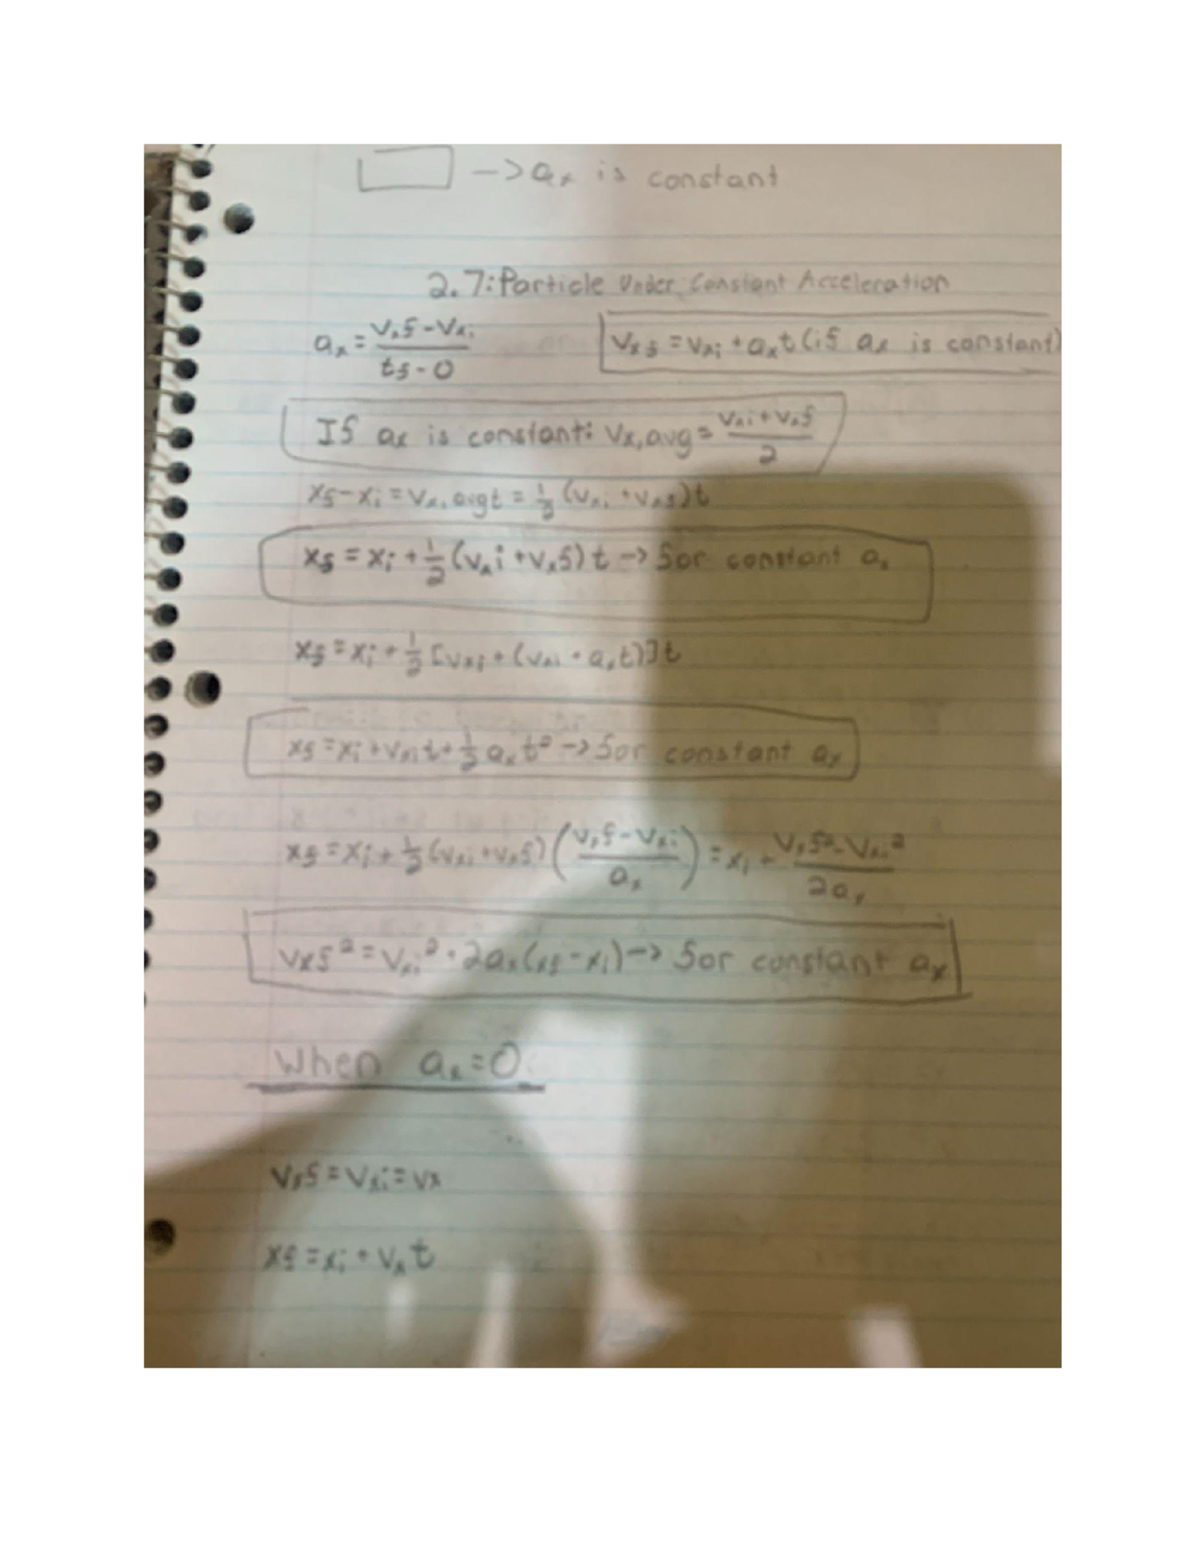 → aₓ is constant
2.7: Particle Under Constant Acceleration
aₓ = (vₓf - vₓi)/(tf - 0)
vₓf = vₓi + aₓt (if aₓ is constant)
If aₓ is constant: vₓ,avg = (vₓi + vₓf)/2
xf - xi = vₓ,avg t = ½(vₓi + vₓf)t
xf = xi + ½(vₓi + vₓf)t → for constant aₓ
xf = xi + ½[vₓi + (vₓi + aₓt)]t
xf = xi + vₓit + ½aₓt² → for constant aₓ
xf = xi + ½(vₓi + vₓf)((vₓf - vₓi)/aₓ) = xi + (vₓf² - vₓi²)/(2aₓ)
vₓf² = vₓi² + 2aₓ(xf - xi) → for constant aₓ
When aₓ = 0:
vₓf = vₓi = vₓ
xf = xi + vₓt